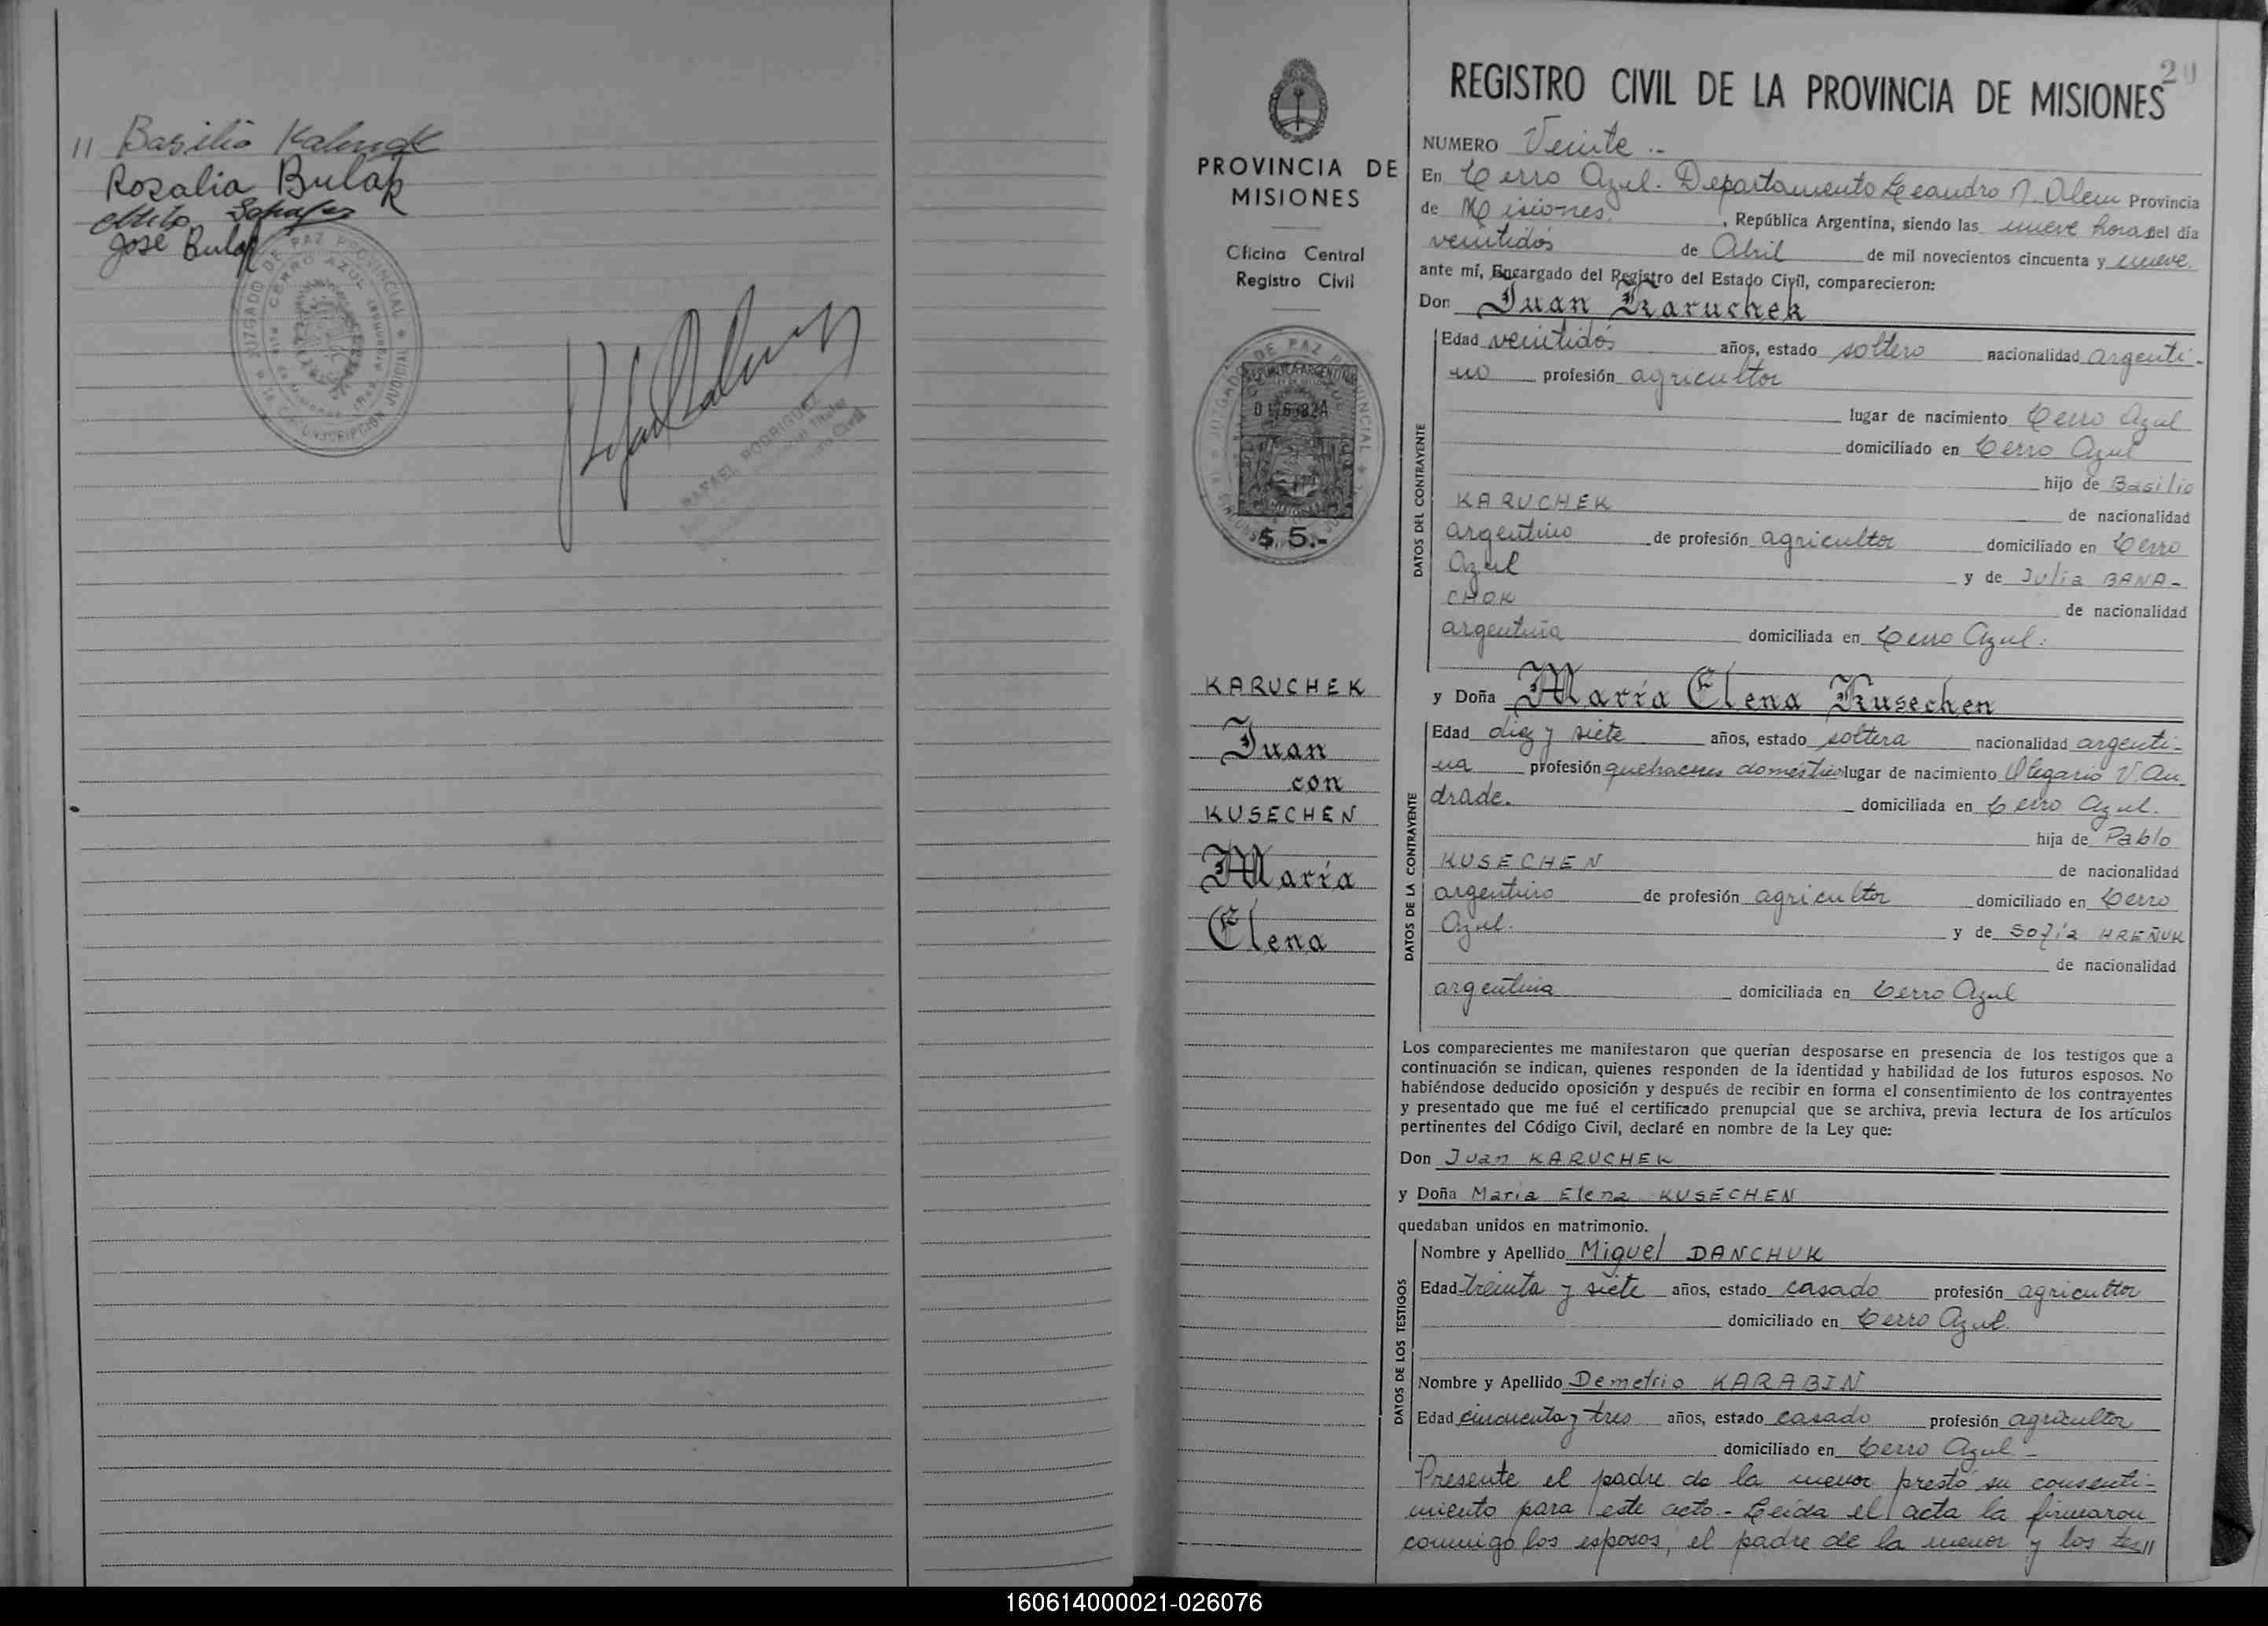 11 Basilio Kaluzat
Rosalia Bulak
José Bulak
JUZGADO DE PAZ PROVINCIAL
CERRO AZUL
RAFAEL RODRIGUEZ
20
REGISTRO CIVIL DE LA PROVINCIA DE MISIONES
PROVINCIA DE
MISIONES
Oficina Central
Registro Civil
REPUBLICA ARGENTINA
$ 5.-
KARUCHEK
Juan
con
KUSECHEN
María
Elena
NUMERO Veinte .-
En Cerro Azul. Departamento Leandro N. Alem Provincia
de Misiones, República Argentina, siendo las nueve horas del día
veintidós de Abril de mil novecientos cincuenta y nueve.
ante mí, Encargado del Registro del Estado Civil, comparecieron:
Don Juan Karuchek
DATOS DEL CONTRAYENTE
Edad veintidós años, estado soltero nacionalidad argenti-
no profesión agricultor
lugar de nacimiento Cerro Azul
domiciliado en Cerro Azul
hijo de Basilio
KARUCHEK de nacionalidad
argentino de profesión agricultor domiciliado en Cerro
Azul y de Julia BANA-
CHOK de nacionalidad
argentina domiciliada en Cerro Azul.
y Doña María Elena Kusechen
DATOS DE LA CONTRAYENTE
Edad diez y siete años, estado soltera nacionalidad argenti-
na profesión quehaceres domésticos lugar de nacimiento Olegario V. An
drade. domiciliada en Cerro Azul.
hija de Pablo
KUSECHEN de nacionalidad
argentino de profesión agricultor domiciliado en Cerro
Azul. y de Sofía HREÑUK
de nacionalidad
argentina domiciliada en Cerro Azul
Los comparecientes me manifestaron que querían desposarse en presencia de los testigos que a
continuación se indican, quienes responden de la identidad y habilidad de los futuros esposos. No
habiéndose deducido oposición y después de recibir en forma el consentimiento de los contrayentes
y presentado que me fué el certificado prenupcial que se archiva, previa lectura de los artículos
pertinentes del Código Civil, declaré en nombre de la Ley que:
Don Juan KARUCHEK
y Doña María Elena KUSECHEN
quedaban unidos en matrimonio.
DATOS DE LOS TESTIGOS
Nombre y Apellido Miguel DANCHUK
Edad treinta y siete años, estado casado profesión agricultor
domiciliado en Cerro Azul.
Nombre y Apellido Demetrio KARABIN
Edad cincuenta y tres años, estado casado profesión agricultor
domiciliado en Cerro Azul -
Presente el padre de la menor prestó su consenti-
miento para este acto.- Leída el acta la firmaron
conmigo los esposos, el padre de la menor y los tes11
160614000021-026076